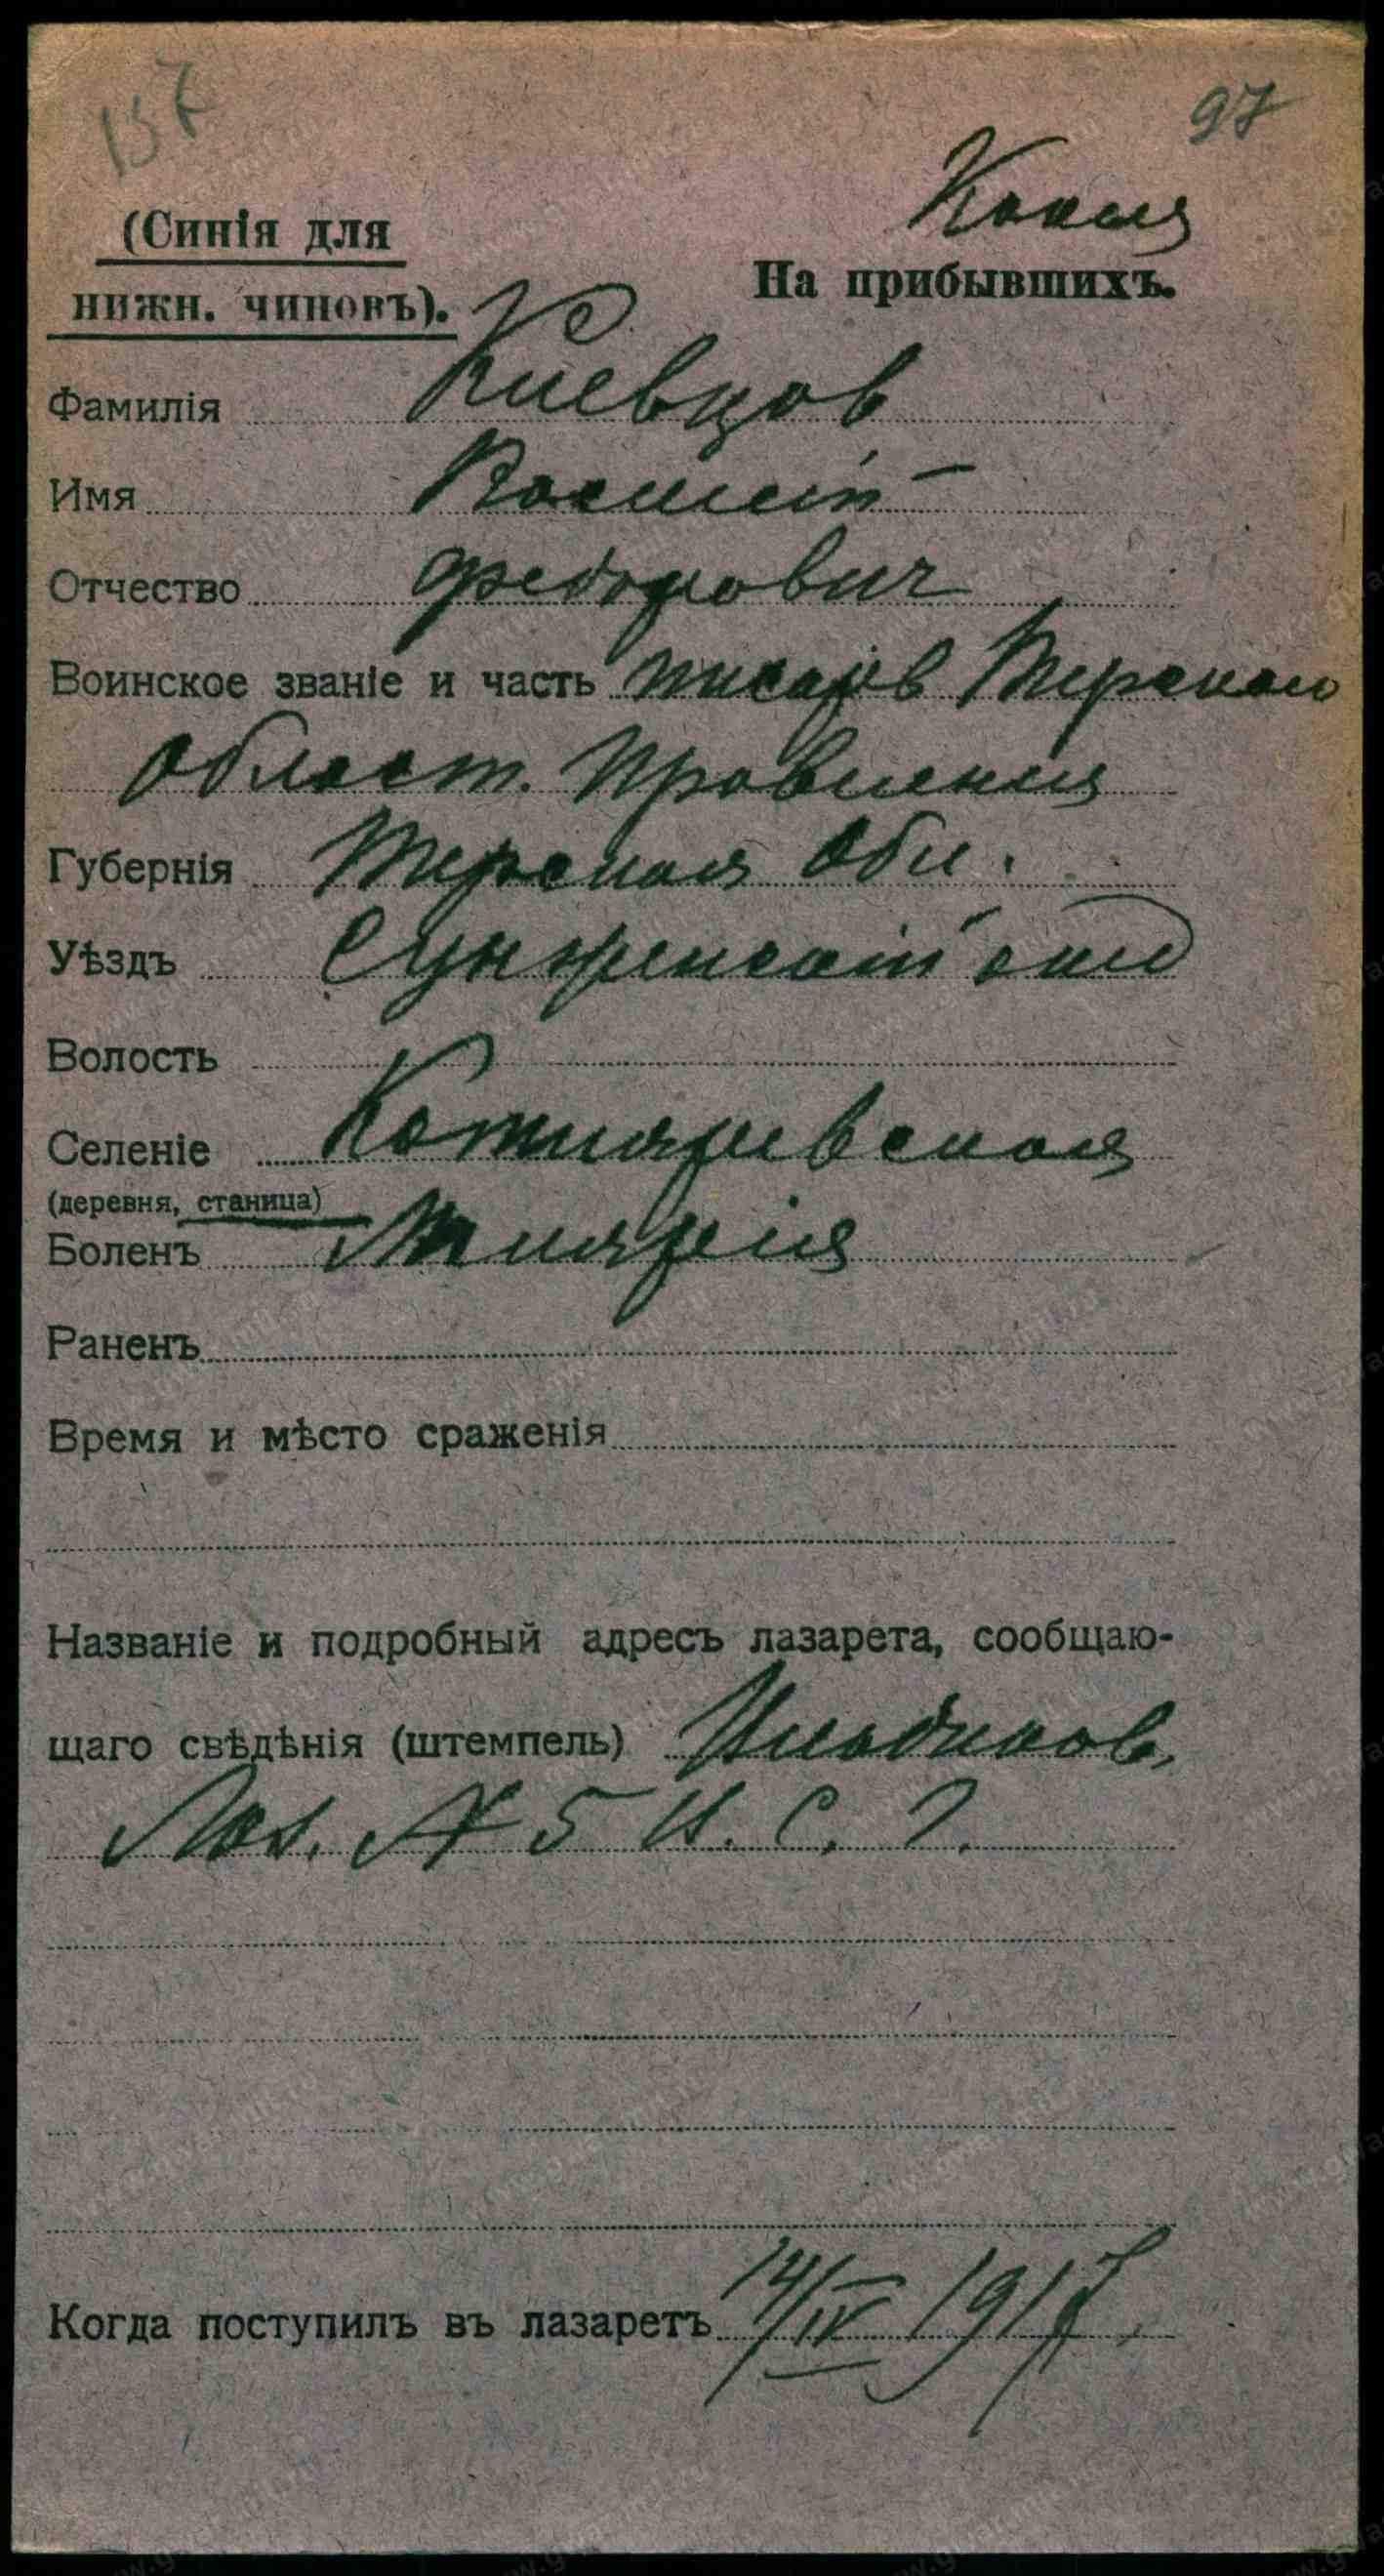 157
97
Копия
(Синія для
На прибывшихъ.
нижн. чиновъ).
Фамилія Киевцов
Имя Василий
Отчество Федорович
Воинское званіе и часть писарь Терского
Област. Правления
Губернія Терская Обл.
Уѣздъ Сунженский
Волость
Селеніе Котляревская
(деревня, станица)
Боленъ Малярія
Раненъ
Время и мѣсто сраженія
Названіе и подробный адресъ лазарета, сообщаю-
щаго свѣдѣнія (штемпель)
Лаз. № 5 В. С. Г.
Когда поступилъ въ лазаретъ 14/IV 1917